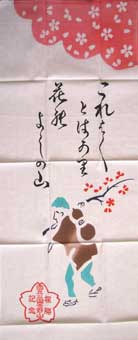 これは〱
とはかり
花能
よしの山
記念